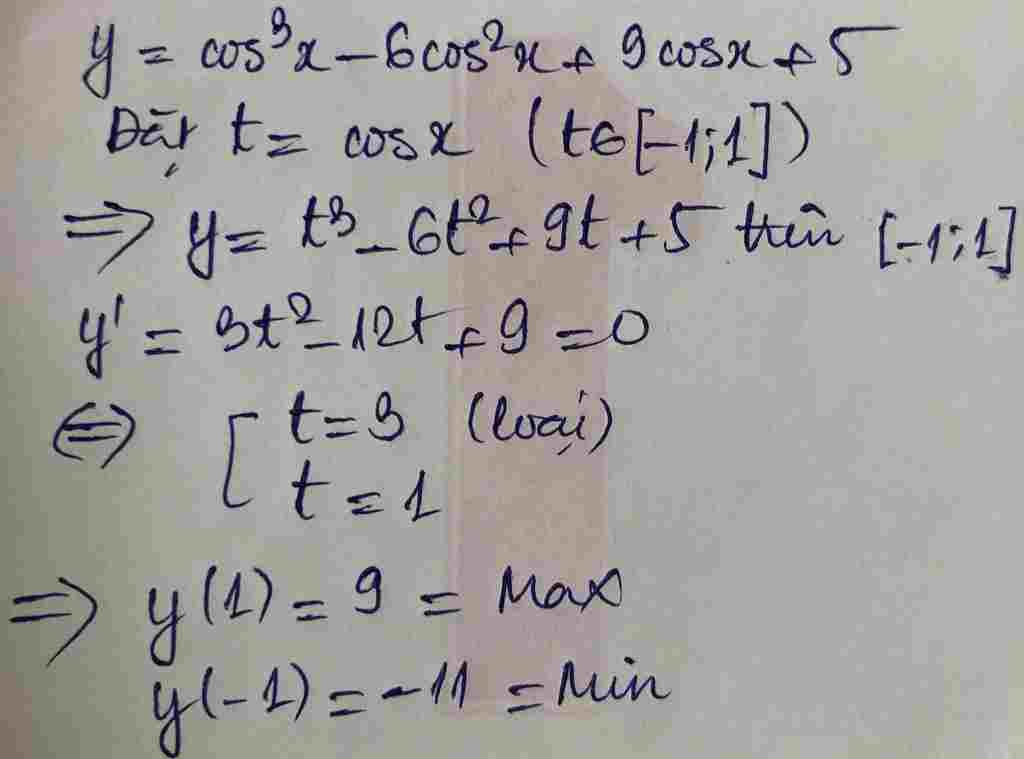 y = cos³x - 6cos²x + 9cosx + 5
Đặt t = cosx (t∈[-1;1])
⇒ y = t³ - 6t² + 9t + 5 trên [-1;1]
y' = 3t² - 12t + 9 = 0
⇔ [ t = 3 (loại)
t = 1
⇒ y(1) = 9 = Max
y(-1) = -11 = Min